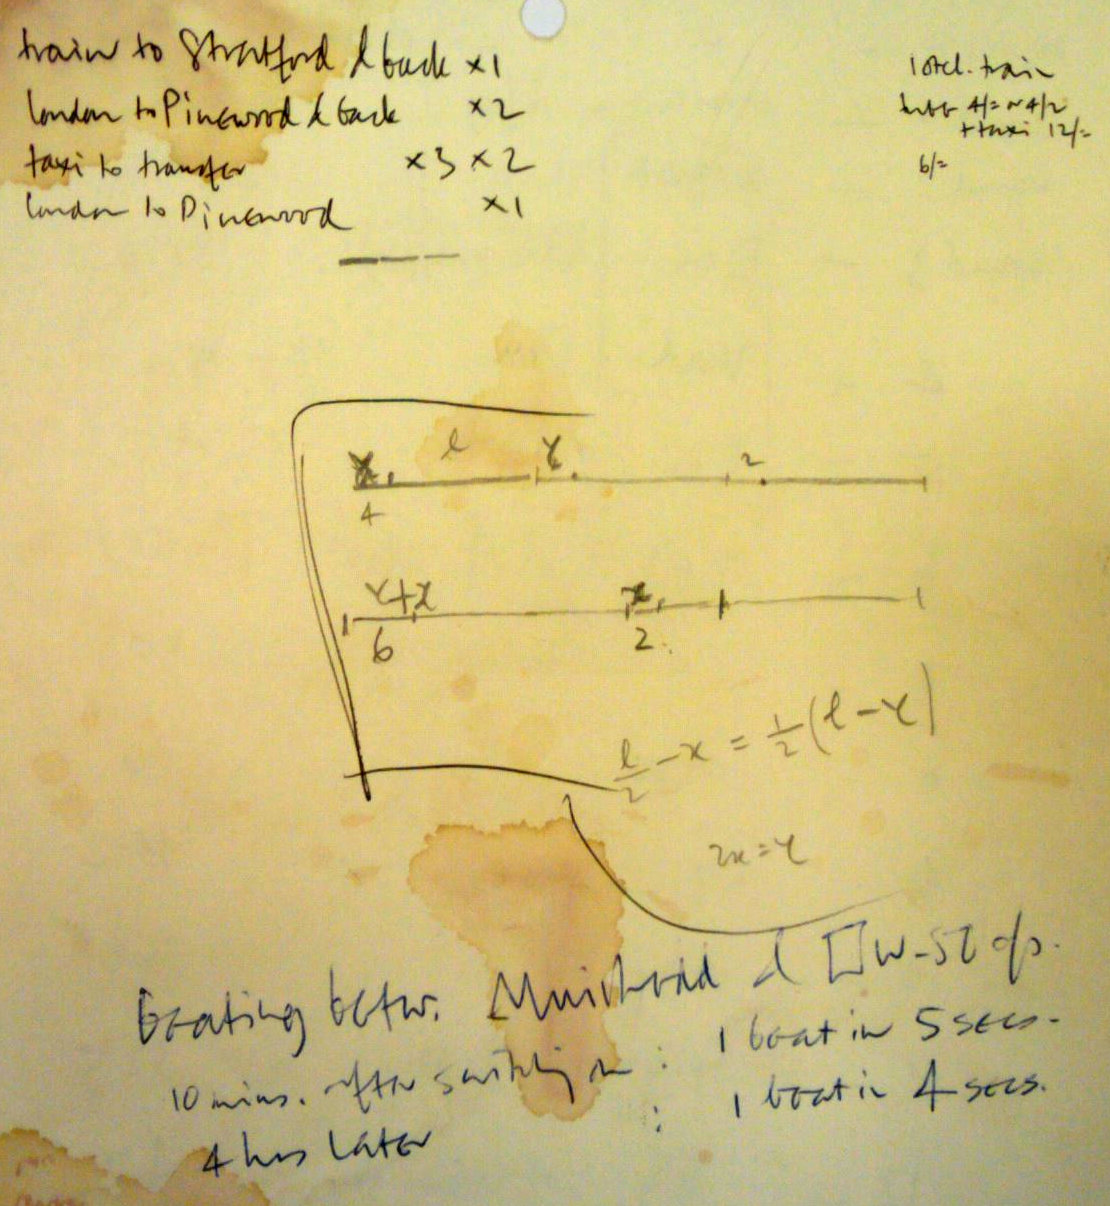 train to Stratford & back ×1
London to Pinewood & back ×2
taxi to transfer ×3 ×2
London to Pinewood ×1
train
4/= ~ 4/2
+ taxi 12/=
6/=
l Y 2
4
Y+x x
6 2
l/2 - x = 1/2 (l - Y)
2x = Y
Beating betw. Muirhead & □w-
10 mins. after switching on : 1 beat in 5 secs.
4 hrs later : 1 beat in 4 secs.